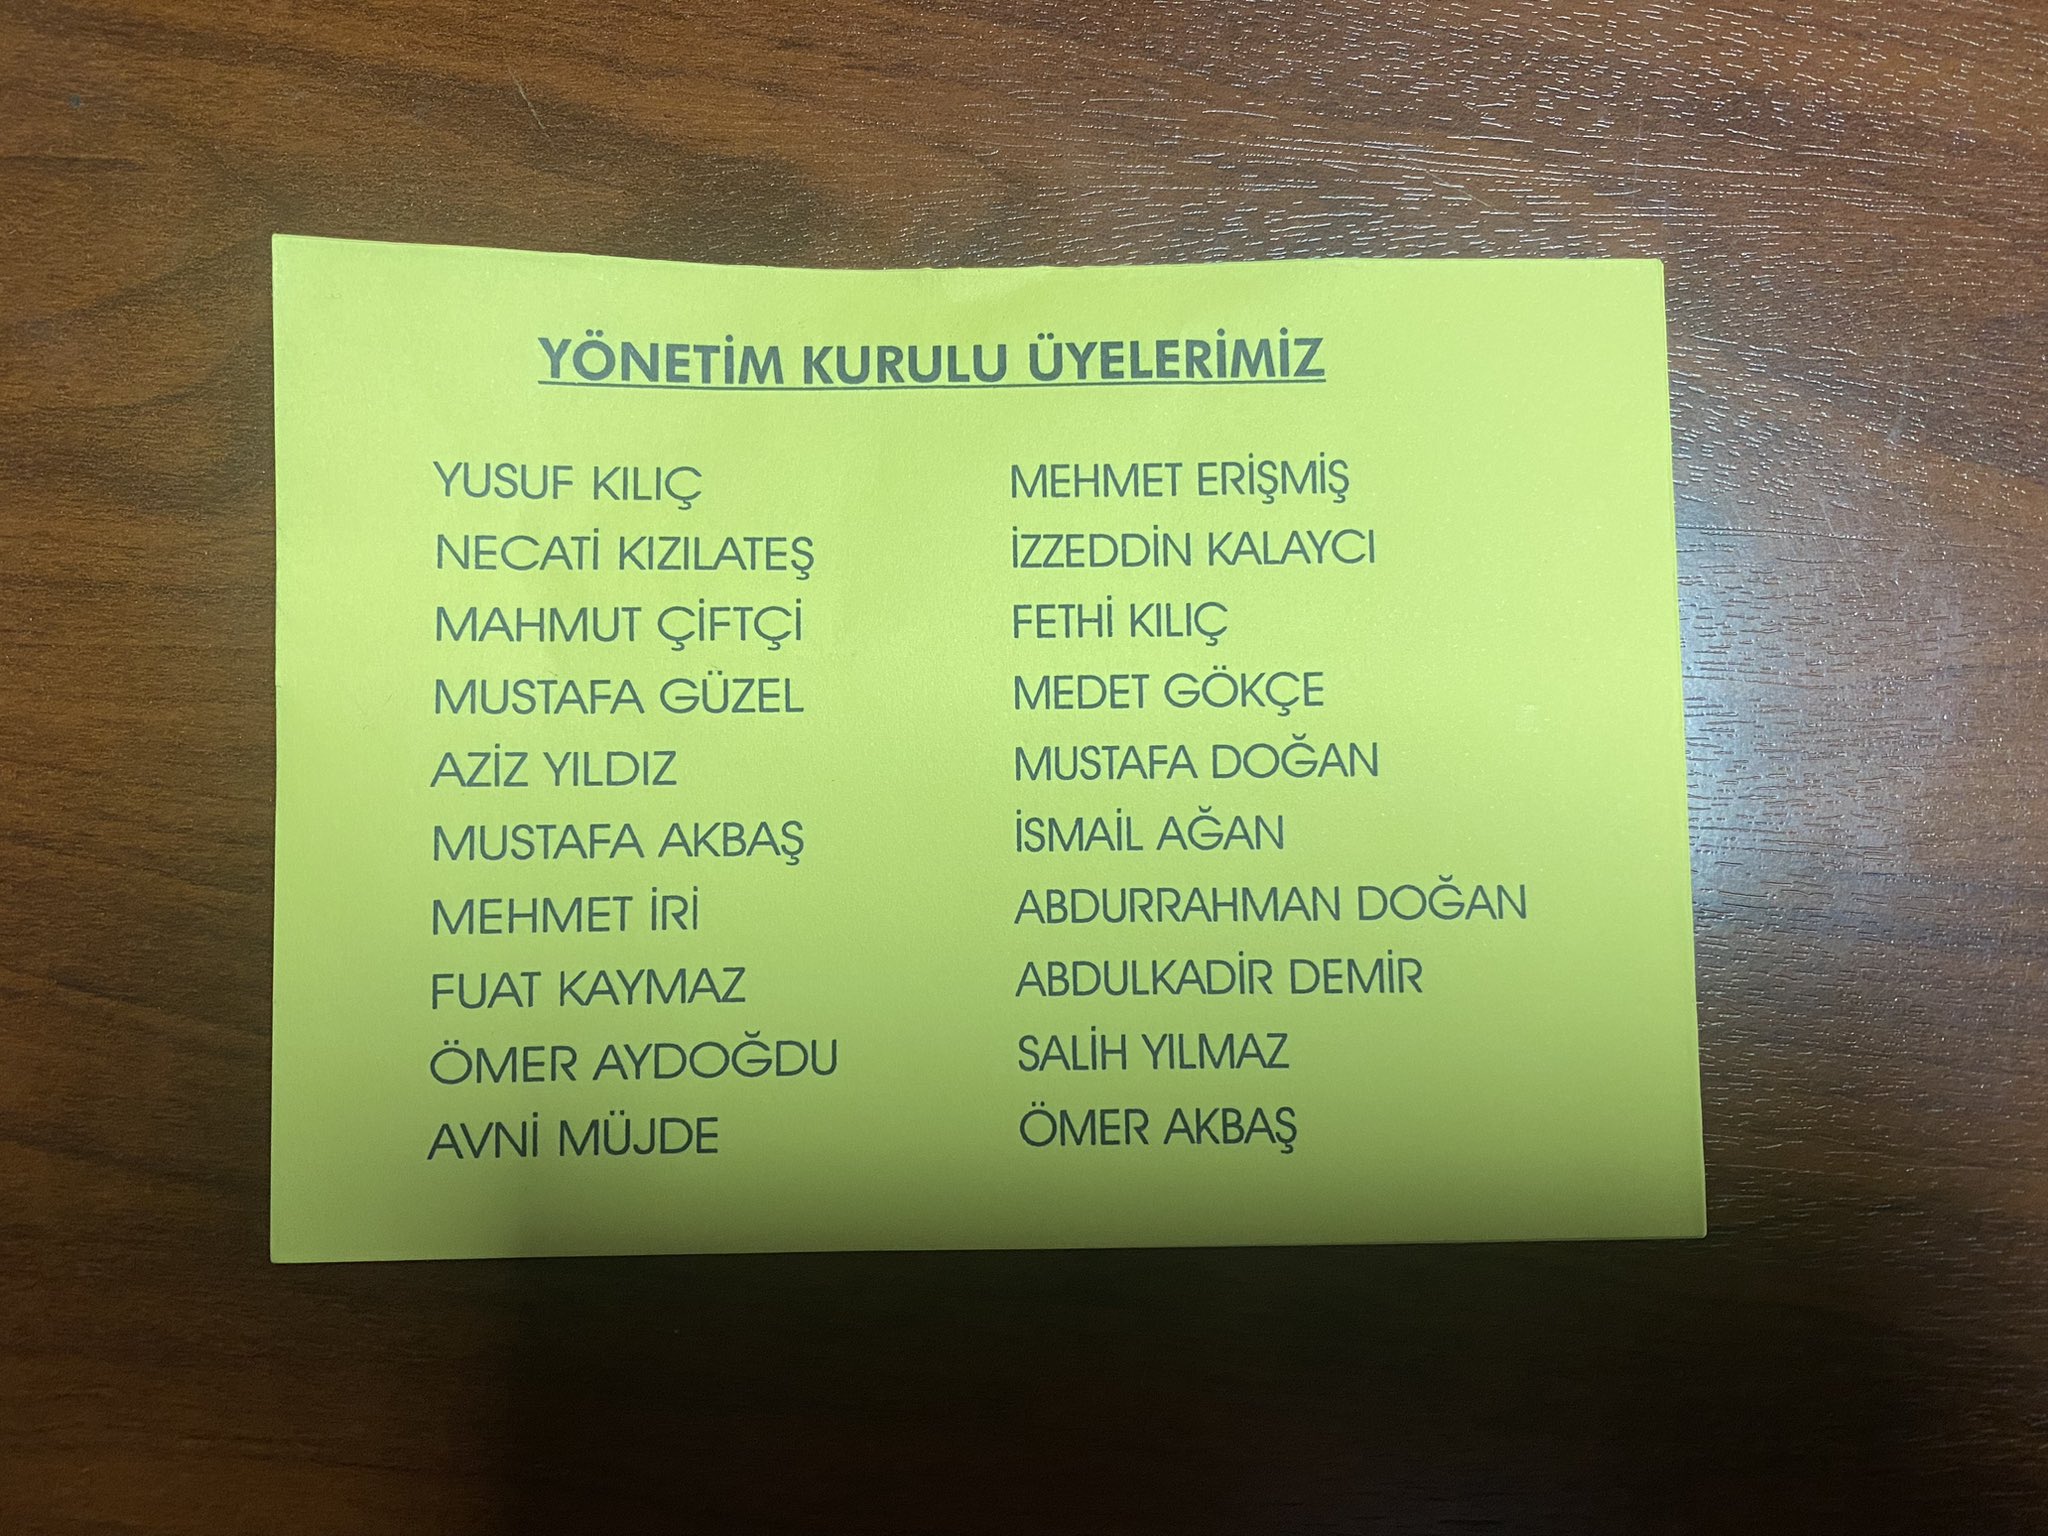 YÖNETİM KURULU ÜYELERİMİZ
YUSUF KILIÇ
NECATİ KIZILATEŞ
MAHMUT ÇİFTÇİ
MUSTAFA GÜZEL
AZİZ YILDIZ
MUSTAFA AKBAŞ
MEHMET İRİ
FUAT KAYMAZ
ÖMER AYDOĞDU
AVNİ MÜJDE
MEHMET ERİŞMİŞ
İZZEDDİN KALAYCI
FETHİ KILIÇ
MEDET GÖKÇE
MUSTAFA DOĞAN
İSMAİL AĞAN
ABDURRAHMAN DOĞAN
ABDULKADİR DEMİR
SALİH YILMAZ
ÖMER AKBAŞ